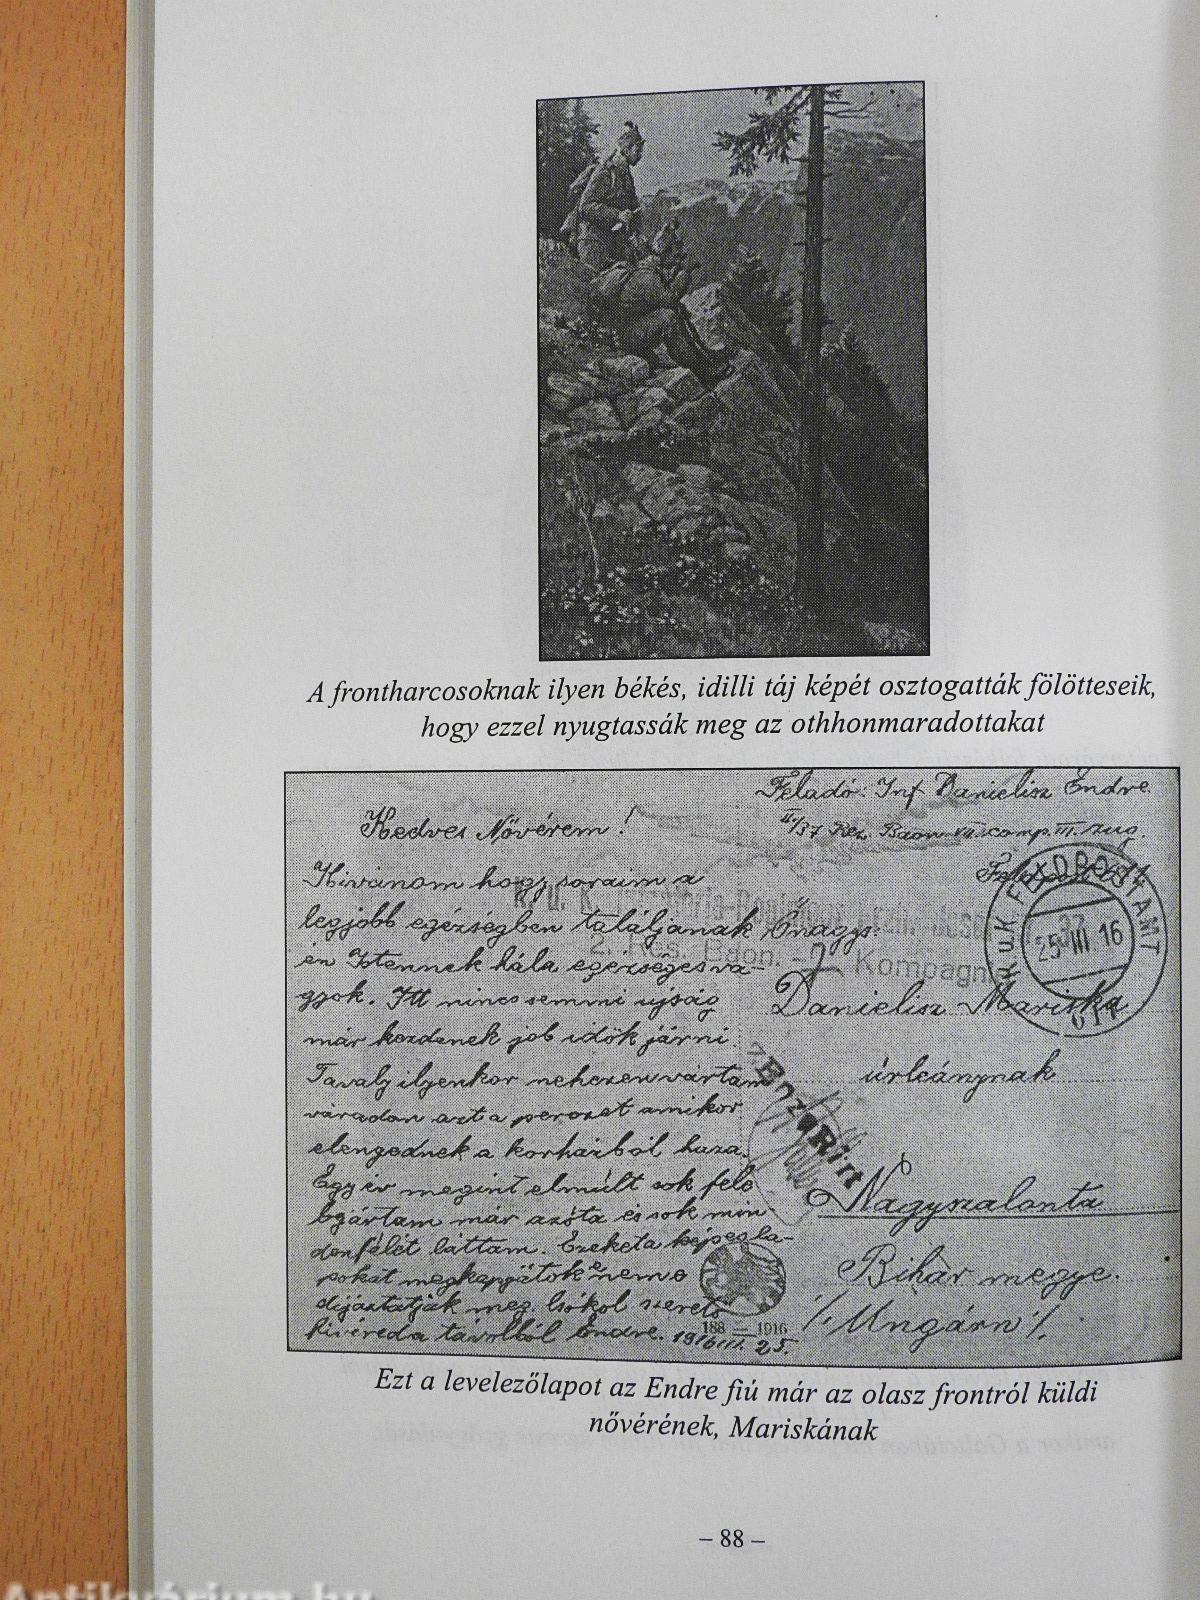 A frontharcosoknak ilyen békés, idilli táj képét osztogatták fölötteseik,
hogy ezzel nyugtassák meg az othhonmaradottakat
Feladó: Inf Danielisz Endre
II/37 Rez. Baon. VII. comp. III. zug.
Kedves Nővérem!
Kivánom hogy soraim a
legjobb egézségben találjanak
én Istennek hála egerségesva-
gyok. Itt nincs semmi ujság
már kezdenek job idök járni
Tavaly ilyenkor nehezen vártam
váradon azt a perczet amikor
elengednek a korházból haza.
Egy év megint elmúlt sok fele
bgártam már azóta és sok min-
denfélét láttam. Ezeket a képesla-
pokát megkapjátok e nem
dijáztatják meg. Csókol szerető
kivéreda távolból Endre. 1916 III. 25.
Őnagys.
Danielisz Mariska
úrleánynak
Nagyszalonta
Bihar megye.
/. Ungárn /.
2. Res. Baon. - 2 Kompagni
K.u.K. FELDPOSTAMT
25 III 16
188 – 1916
Ezt a levelezőlapot az Endre fiú már az olasz frontról küldi
nővérének, Mariskának
– 88 –
Antikvárium.hu